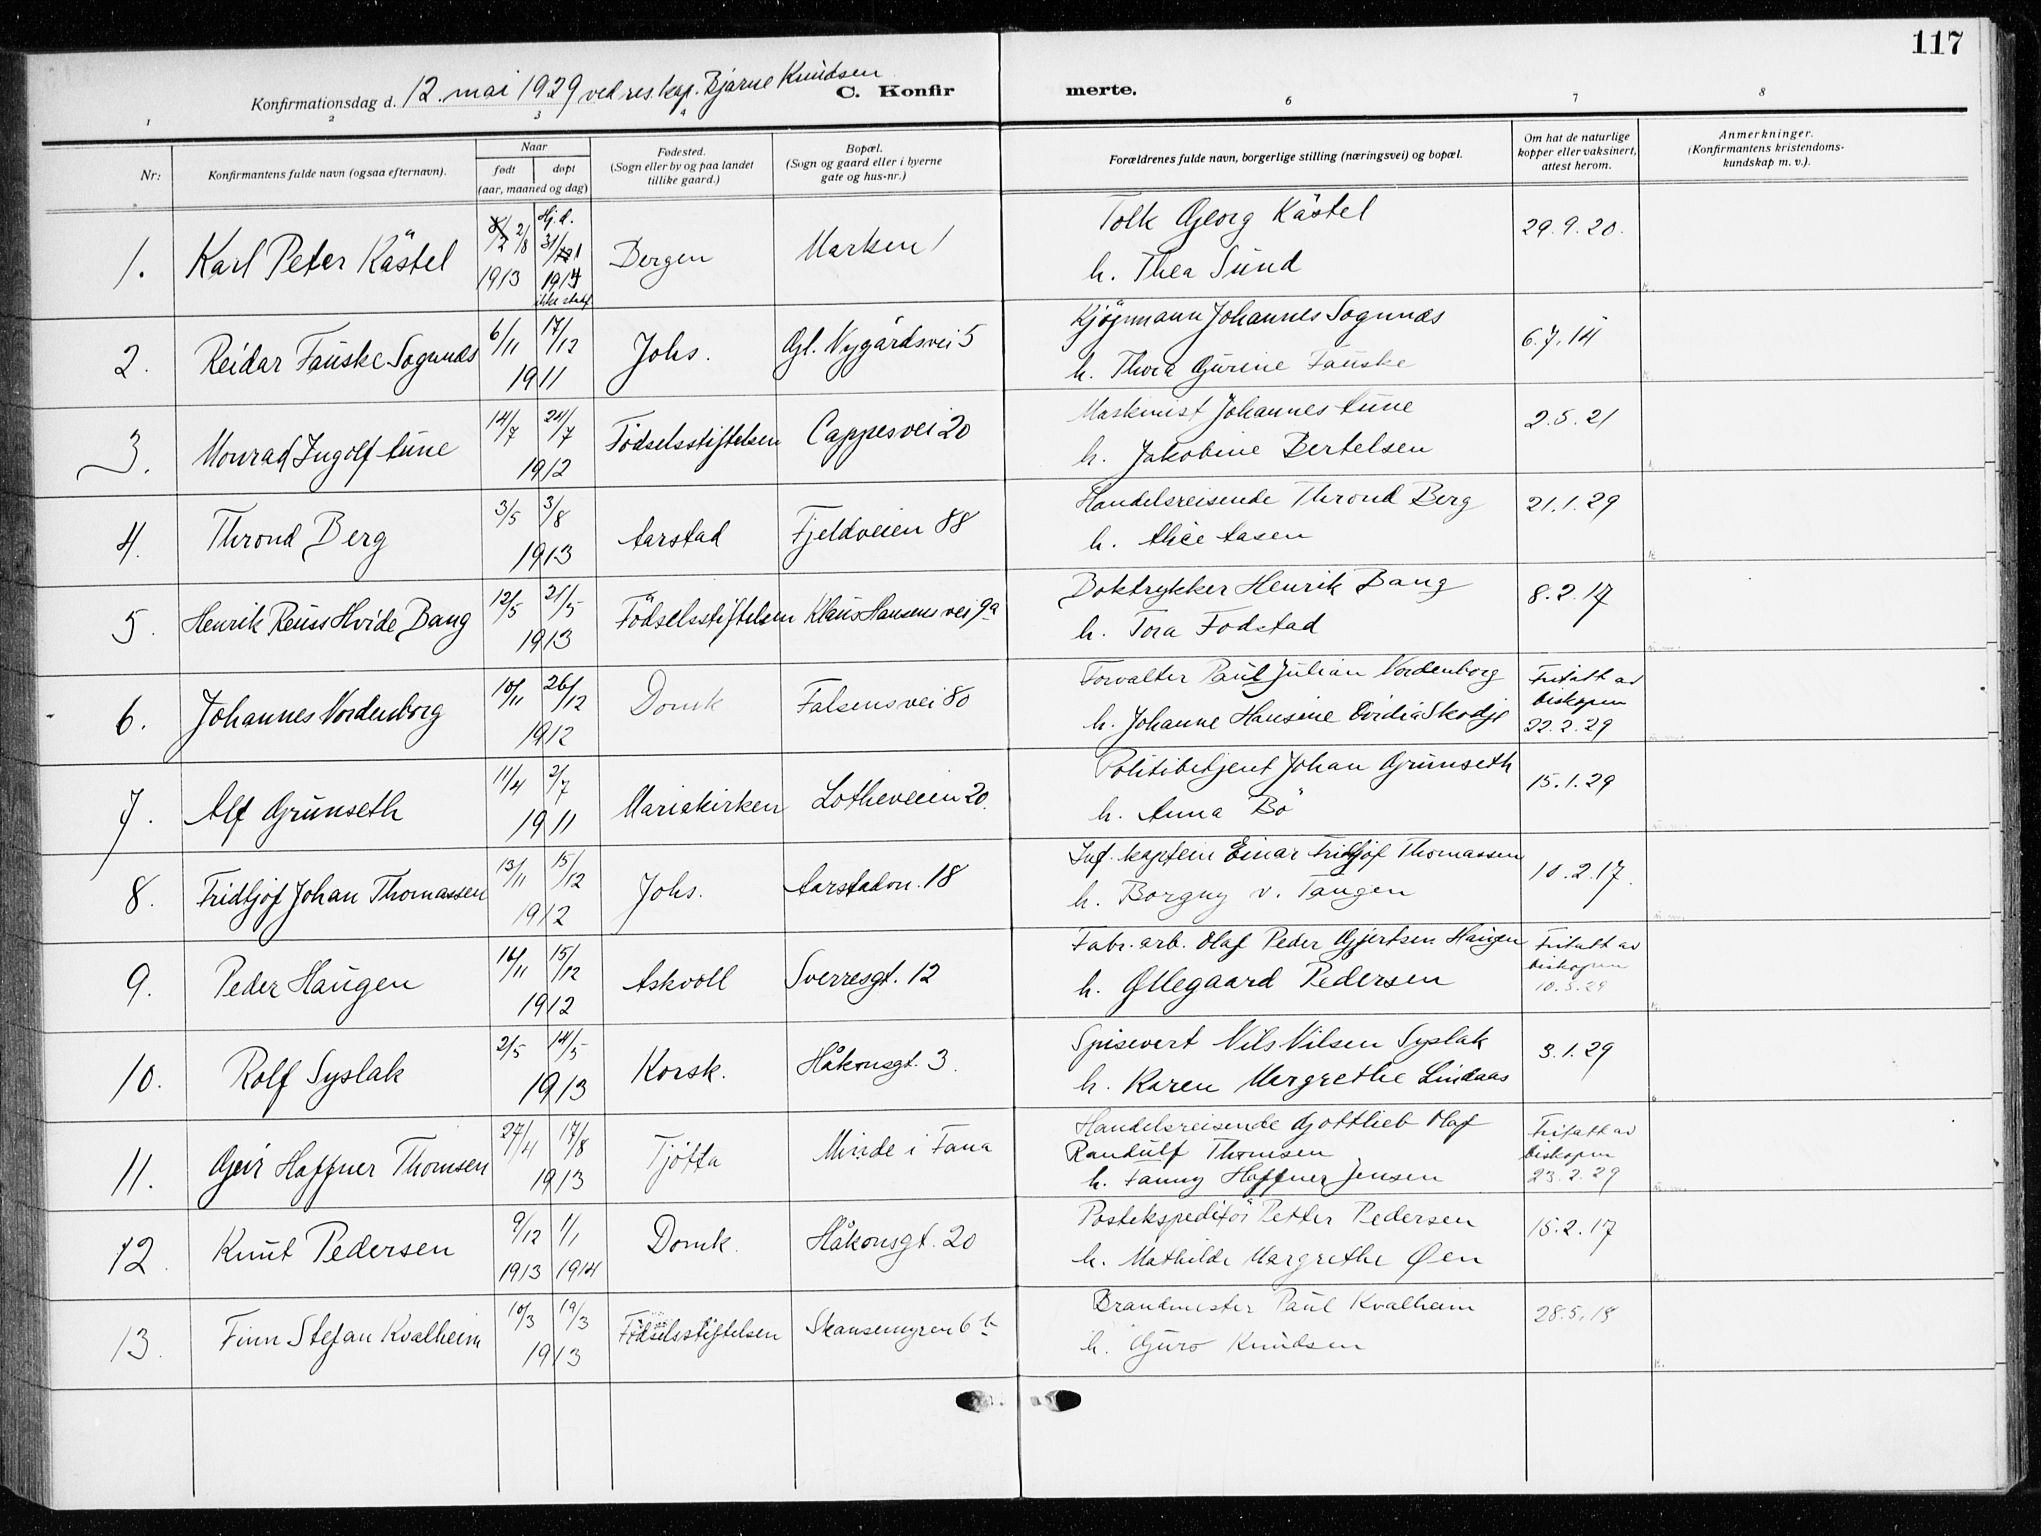 117
Konfirmationsdag d. 12. mai 1929 ved res. kap. Bjarne Knudsen
C. Konfirmerte.
1 2 3 4 6 7 8
Nr:
Konfirmantens fulde navn (ogsaa efternavn).
Naar
født døpt
(aar, maaned og dag)
Fødested.
(Sogn eller by og paa landet
tillike gaard.)
Bopæl.
(Sogn og gaard eller i byerne
gate og hus-nr.)
Forældrenes fulde navn, borgerlige stilling (næringsvei) og bopæl.
Om hat de naturlige
kopper eller vaksinert,
attest herom.
Anmerkninger.
(Konfirmantens kristendoms-
kundskap m. v.).
1. Karl Peter Kästel 2/8 1913 Hj.d. 31/1 1914 Bergen Marken 1
Tolk Georg Kästel 29.9.20.
h. Thea Sund
2. Reidar Fauske Sognnæs 6/11 17/12 1911 Johs. Gl. Nygårdsvei 5
Kjøpmann Johannes Sognnæs 6.7.14
h. Thora Gurine Fauske
3. Monrad Ingolf Aune 14/7 24/7 1912 Födselsstiftelsen Cappesvei 20
Maskinist Johannes Aune 2.5.21
h. Jakobine Bertelsen
4. Thrond Berg 3/5 3/8 1913 Aarstad Fjeldveien 88
Handelsreisende Thrond Berg 21.1.29
h. Alice Aasen
5. Henrik Reuss Hvide Bang 12/5 21/5 1913 Födselsstiftelsen Klaus Hansens vei 9a
Boktrykker Henrik Bang 8.2.17
h. Tora Fodstad
6. Johannes Nordenborg 10/11 26/12 1912 Domk Falsensvei 80
Forvalter Paul Julian Nordenborg
h. Johanne Hansine Ovidia Skodje
Fritatt av
biskopen
22.2.29
7. Alf Grünseth 11/4 2/7 1911 Mariakirken Lotheveien 20.
Politibetjent Johan Grünseth 15.1.29
h. Anna Bö
8. Fridtjof Johan Thomassen 13/11 15/12 1912 Johs. Aarstadvn. 18
Inf. kaptein Einar Fridtjof Thomassen 10.2.17.
h. Borgny v. Tangen
9. Peder Haugen 14/11 15/12 1912 Askvoll Sverresgt. 12
Fabr. arb. Olaf Peder Gjertsen Haugen
h. Øllegaard Pedersen
Fritatt av
biskopen
10.3.29
10. Rolf Syslak 2/5 14/5 1913 Korsk. Håkonsgt. 3.
Spisevert Nils Nilsen Syslak 3.1.29
h. Karen Margrethe Lindaas
11. Geir Haffner Thomsen 27/4 17/8 1913 Tjötta Minde i Fana
Handelsreisende Gottlieb Olaf
Randulf Thomsen
h. Fanny Haffner Jensen
Fritatt av
biskopen
23.2.29
12. Knut Pedersen 9/12 1913 1/1 1914 Domk. Håkonsgt. 20
Postekspeditör Petter Pedersen 15.2.17
h. Mathilde Margrethe Øen
13. Finn Stefan Kvalheim 10/3 19/3 1913 Födselsstiftelsen Skansemyren 6 b
Brandmester Paul Kvalheim 28.5.18
h. Guro Knudsen